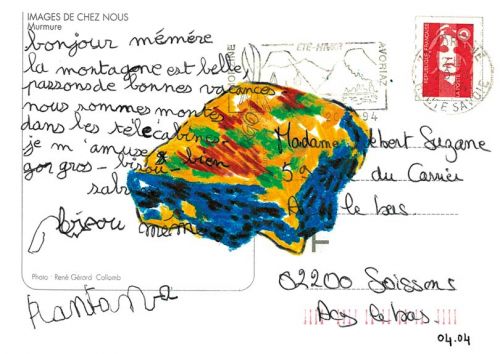 IMAGES DE CHEZ NOUS
Murmure
bonjour mémére
la montagne est belle,
passons de bonnes vacances-
nous sommes montés
dans les télécabines-
je m'amuse bien
gros - bisou
bisou mémé
Photo : René Gérard Collomb
ÉTÉ-HIVER
AVORIAZ
94
RÉPUBLIQUE FRANÇAISE
LA POSTE
HAUTE SAVOIE
Madame Hébert Suzane
du Carrieu
le bas
02200 Soissons
Acy le bas
04.04